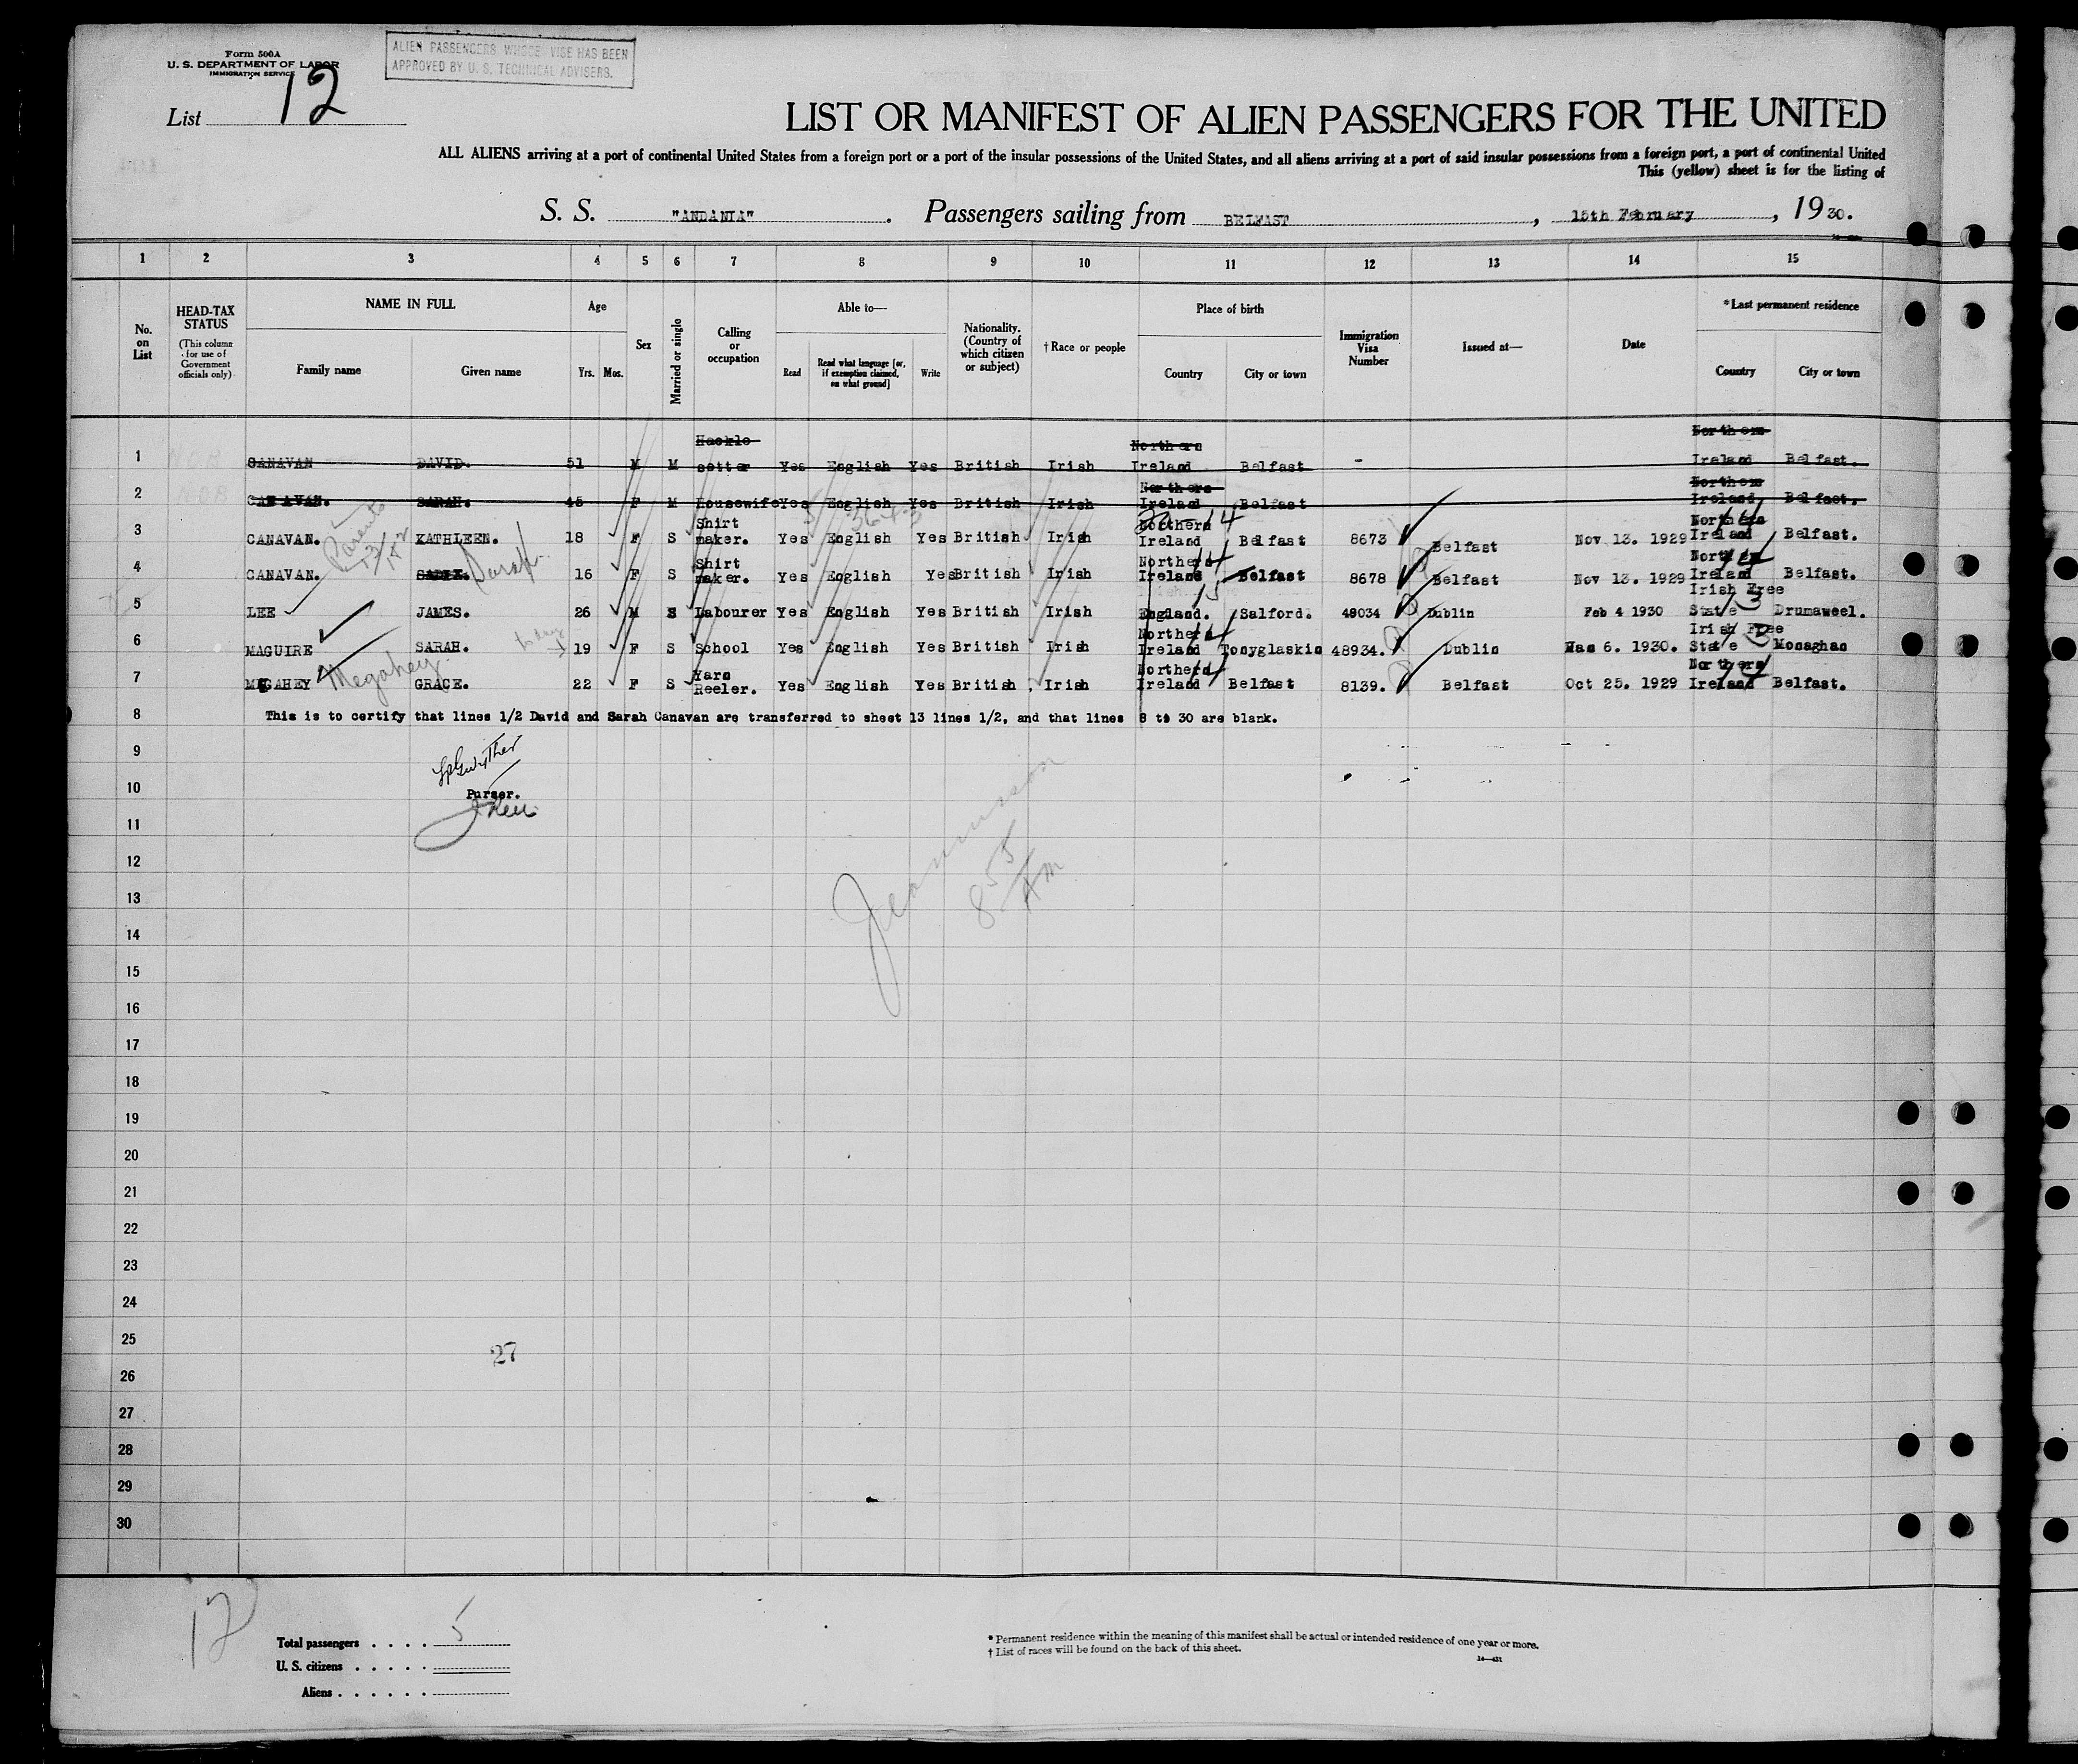 Form 500A
U. S. DEPARTMENT OF LABOR
IMMIGRATION SERVICE
ALIEN PASSENGERS WHOSE VISE HAS BEEN
APPROVED BY U. S. TECHNICAL ADVISERS.
List 12
LIST OR MANIFEST OF ALIEN PASSENGERS FOR THE UNITED
ALL ALIENS arriving at a port of continental United States from a foreign port or a port of the insular possessions of the United States, and all aliens arriving at a port of said insular possessions from a foreign port, a port of continental United
This (yellow) sheet is for the listing of
S. S. "ANDANIA". Passengers sailing from BELFAST, 15th February, 1930.
1 2 3 4 5 6 7 8 9 10 11 12 13 14 15
No. on List
HEAD-TAX STATUS
(This column for use of Government officials only)
NAME IN FULL
Family name Given name
Age
Yrs. Mos.
Sex
Married or single
Calling or occupation
Able to—
Read
Read what language [or, if exemption claimed, on what ground]
Write
Nationality. (Country of which citizen or subject)
† Race or people
Place of birth
Country City or town
Immigration Visa Number
Issued at—
Date
* Last permanent residence
Country City or town
1 CANAVAN DAVID. 51 M M Hackle setter Yes English Yes British Irish Northern Ireland Belfast - Northern Ireland Belfast.
2 CANAVAN. SARAH. 45 F M Housewife Yes English Yes British Irish Northern Ireland Belfast Northern Ireland Belfast.
3 CANAVAN. Parents 13/1+2 KATHLEEN. 18 F S Shirt maker. Yes English Yes British Irish Northern Ireland Belfast 8673 Belfast Nov 13. 1929 Northern Ireland Belfast.
4 CANAVAN. SADIE. Sarah 16 F S Shirt maker. Yes English Yes British Irish Northern Ireland Belfast 8678 Belfast Nov 13. 1929 Northern Ireland Belfast.
5 LEE JAMES. 26 M S Labourer Yes English Yes British Irish England. Salford. 49034 Dublin Feb 4 1930 Irish Free State Drumaweel.
6 MAGUIRE SARAH. 19 F S School Yes English Yes British Irish Northern Ireland Tonyglaskin 48934. Dublin 6. 1930. Irish Free State Monaghan
7 MEGAHEY Megahey GRACE. 22 F S Yarn Reeler. Yes English Yes British Irish Northern Ireland Belfast 8139. Belfast Oct 25. 1929 Northern Ireland Belfast.
8 This is to certify that lines 1/2 David and Sarah Canavan are transferred to sheet 13 lines 1/2, and that lines 8 to 30 are blank.
9
10 Purser.
11
12
13
14
15
16
17
18
19
20
21
22
23
24
25
27
26
27
28
29
30
12
Total passengers . . . . 5
U. S. citizens . . . . .
Aliens . . . . . .
* Permanent residence within the meaning of this manifest shall be actual or intended residence of one year or more.
† List of races will be found on the back of this sheet.